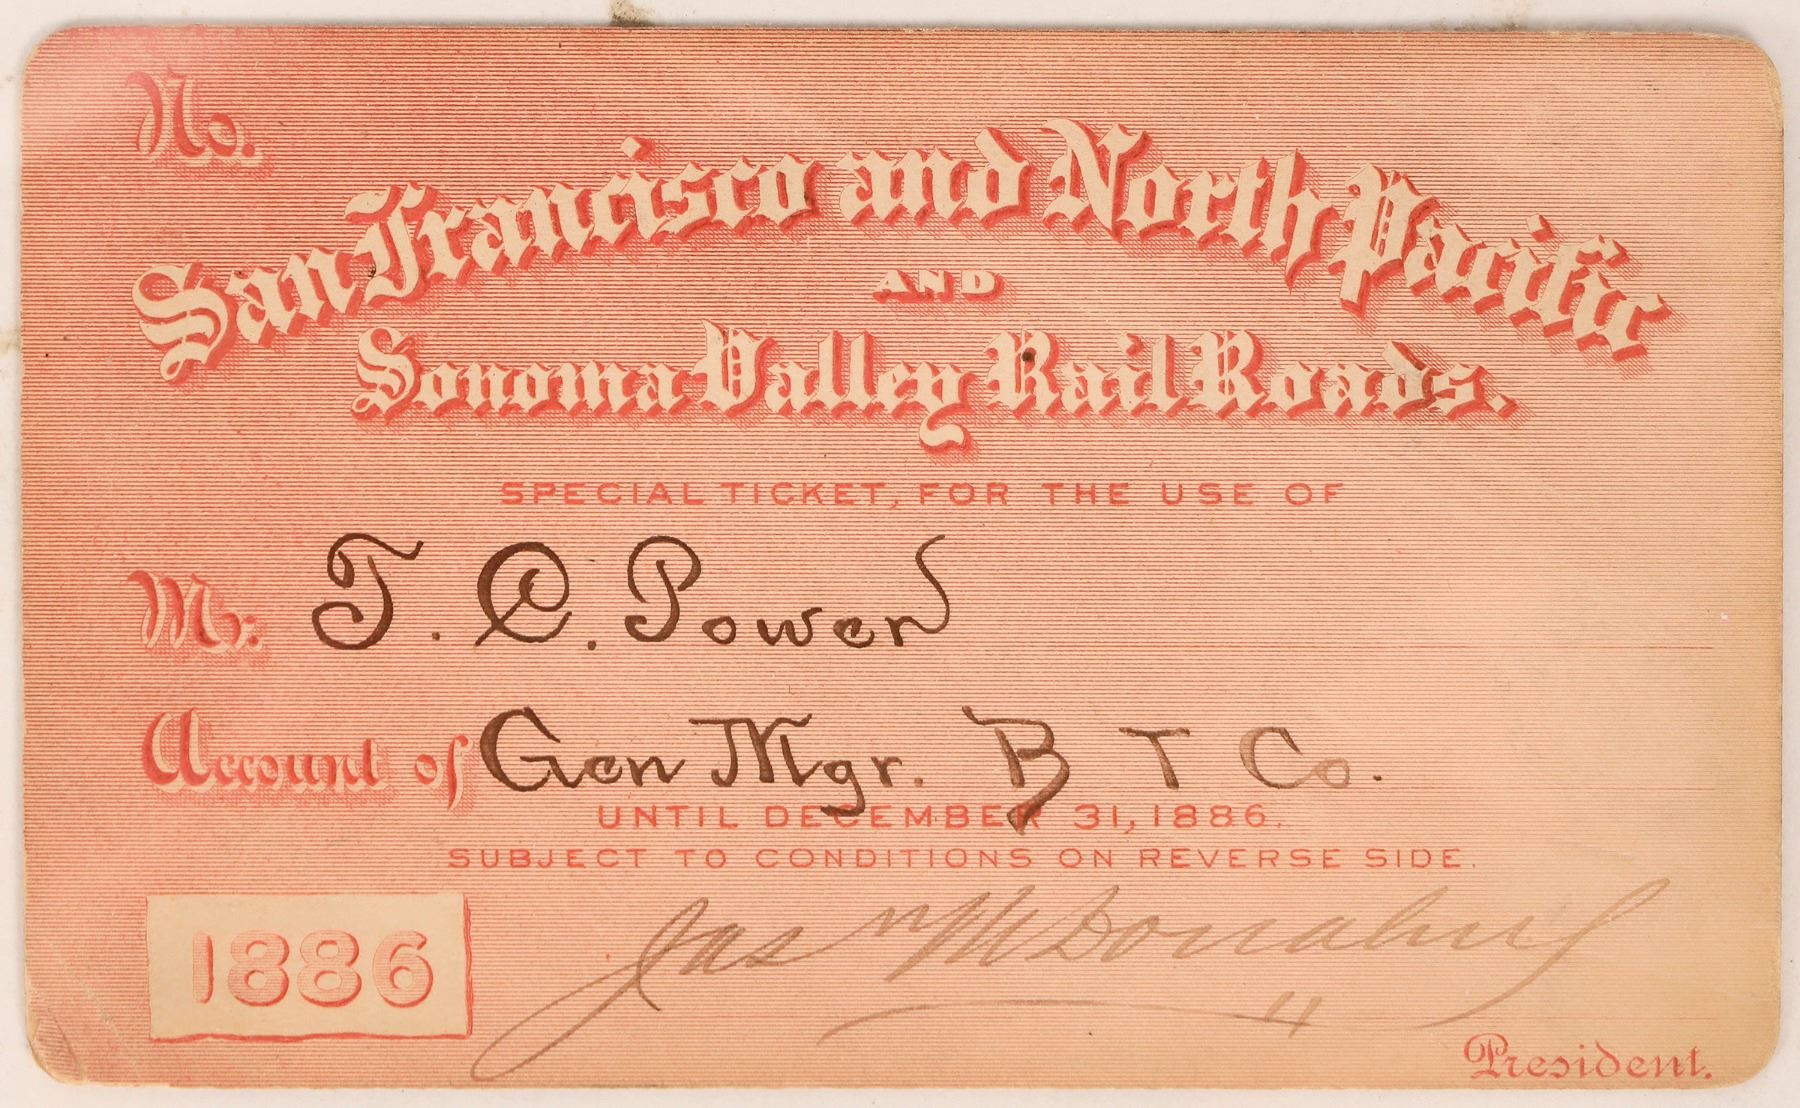 No.
San Francisco and North Pacific
AND
Sonoma Valley Rail Roads.
SPECIAL TICKET, FOR THE USE OF
Mr. T. C. Power
Account of Gen Mgr. B T Co.
UNTIL DECEMBER 31, 1886.
SUBJECT TO CONDITIONS ON REVERSE SIDE.
1886
Jas M Donahue
President.